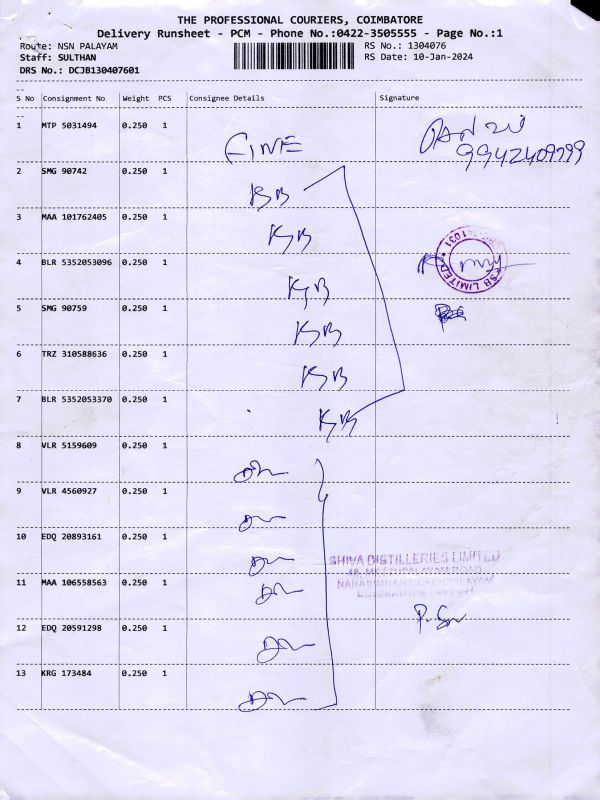 THE PROFESSIONAL COURIERS, COIMBATORE
Delivery Runsheet - PCM - Phone No.:0422-3505555 - Page No.:1
Route: NSN PALAYAM RS No.: 1304076
Staff: SULTHAN RS Date: 10-Jan-2024
DRS No.: DCJB130407601
S No Consignment No Weight PCS Consignee Details Signature
1 MTP 5031494 0.250 1
9942409999
2 SMG 90742 0.250 1 KB
3 MAA 101762405 0.250 1 KB
4 BLR 5352053096 0.250 1 KB
SB LIMITED
5 SMG 90759 0.250 1 KB
6 TRZ 310588636 0.250 1 KB
7 BLR 5352053370 0.250 1 KB
8 VLR 5159609 0.250 1
9 VLR 4560927 0.250 1
10 EDQ 20893161 0.250 1
SHIVA DISTILLERIES LIMITED
11 MAA 106558563 0.250 1
12 EDQ 20591298 0.250 1
13 KRG 173484 0.250 1